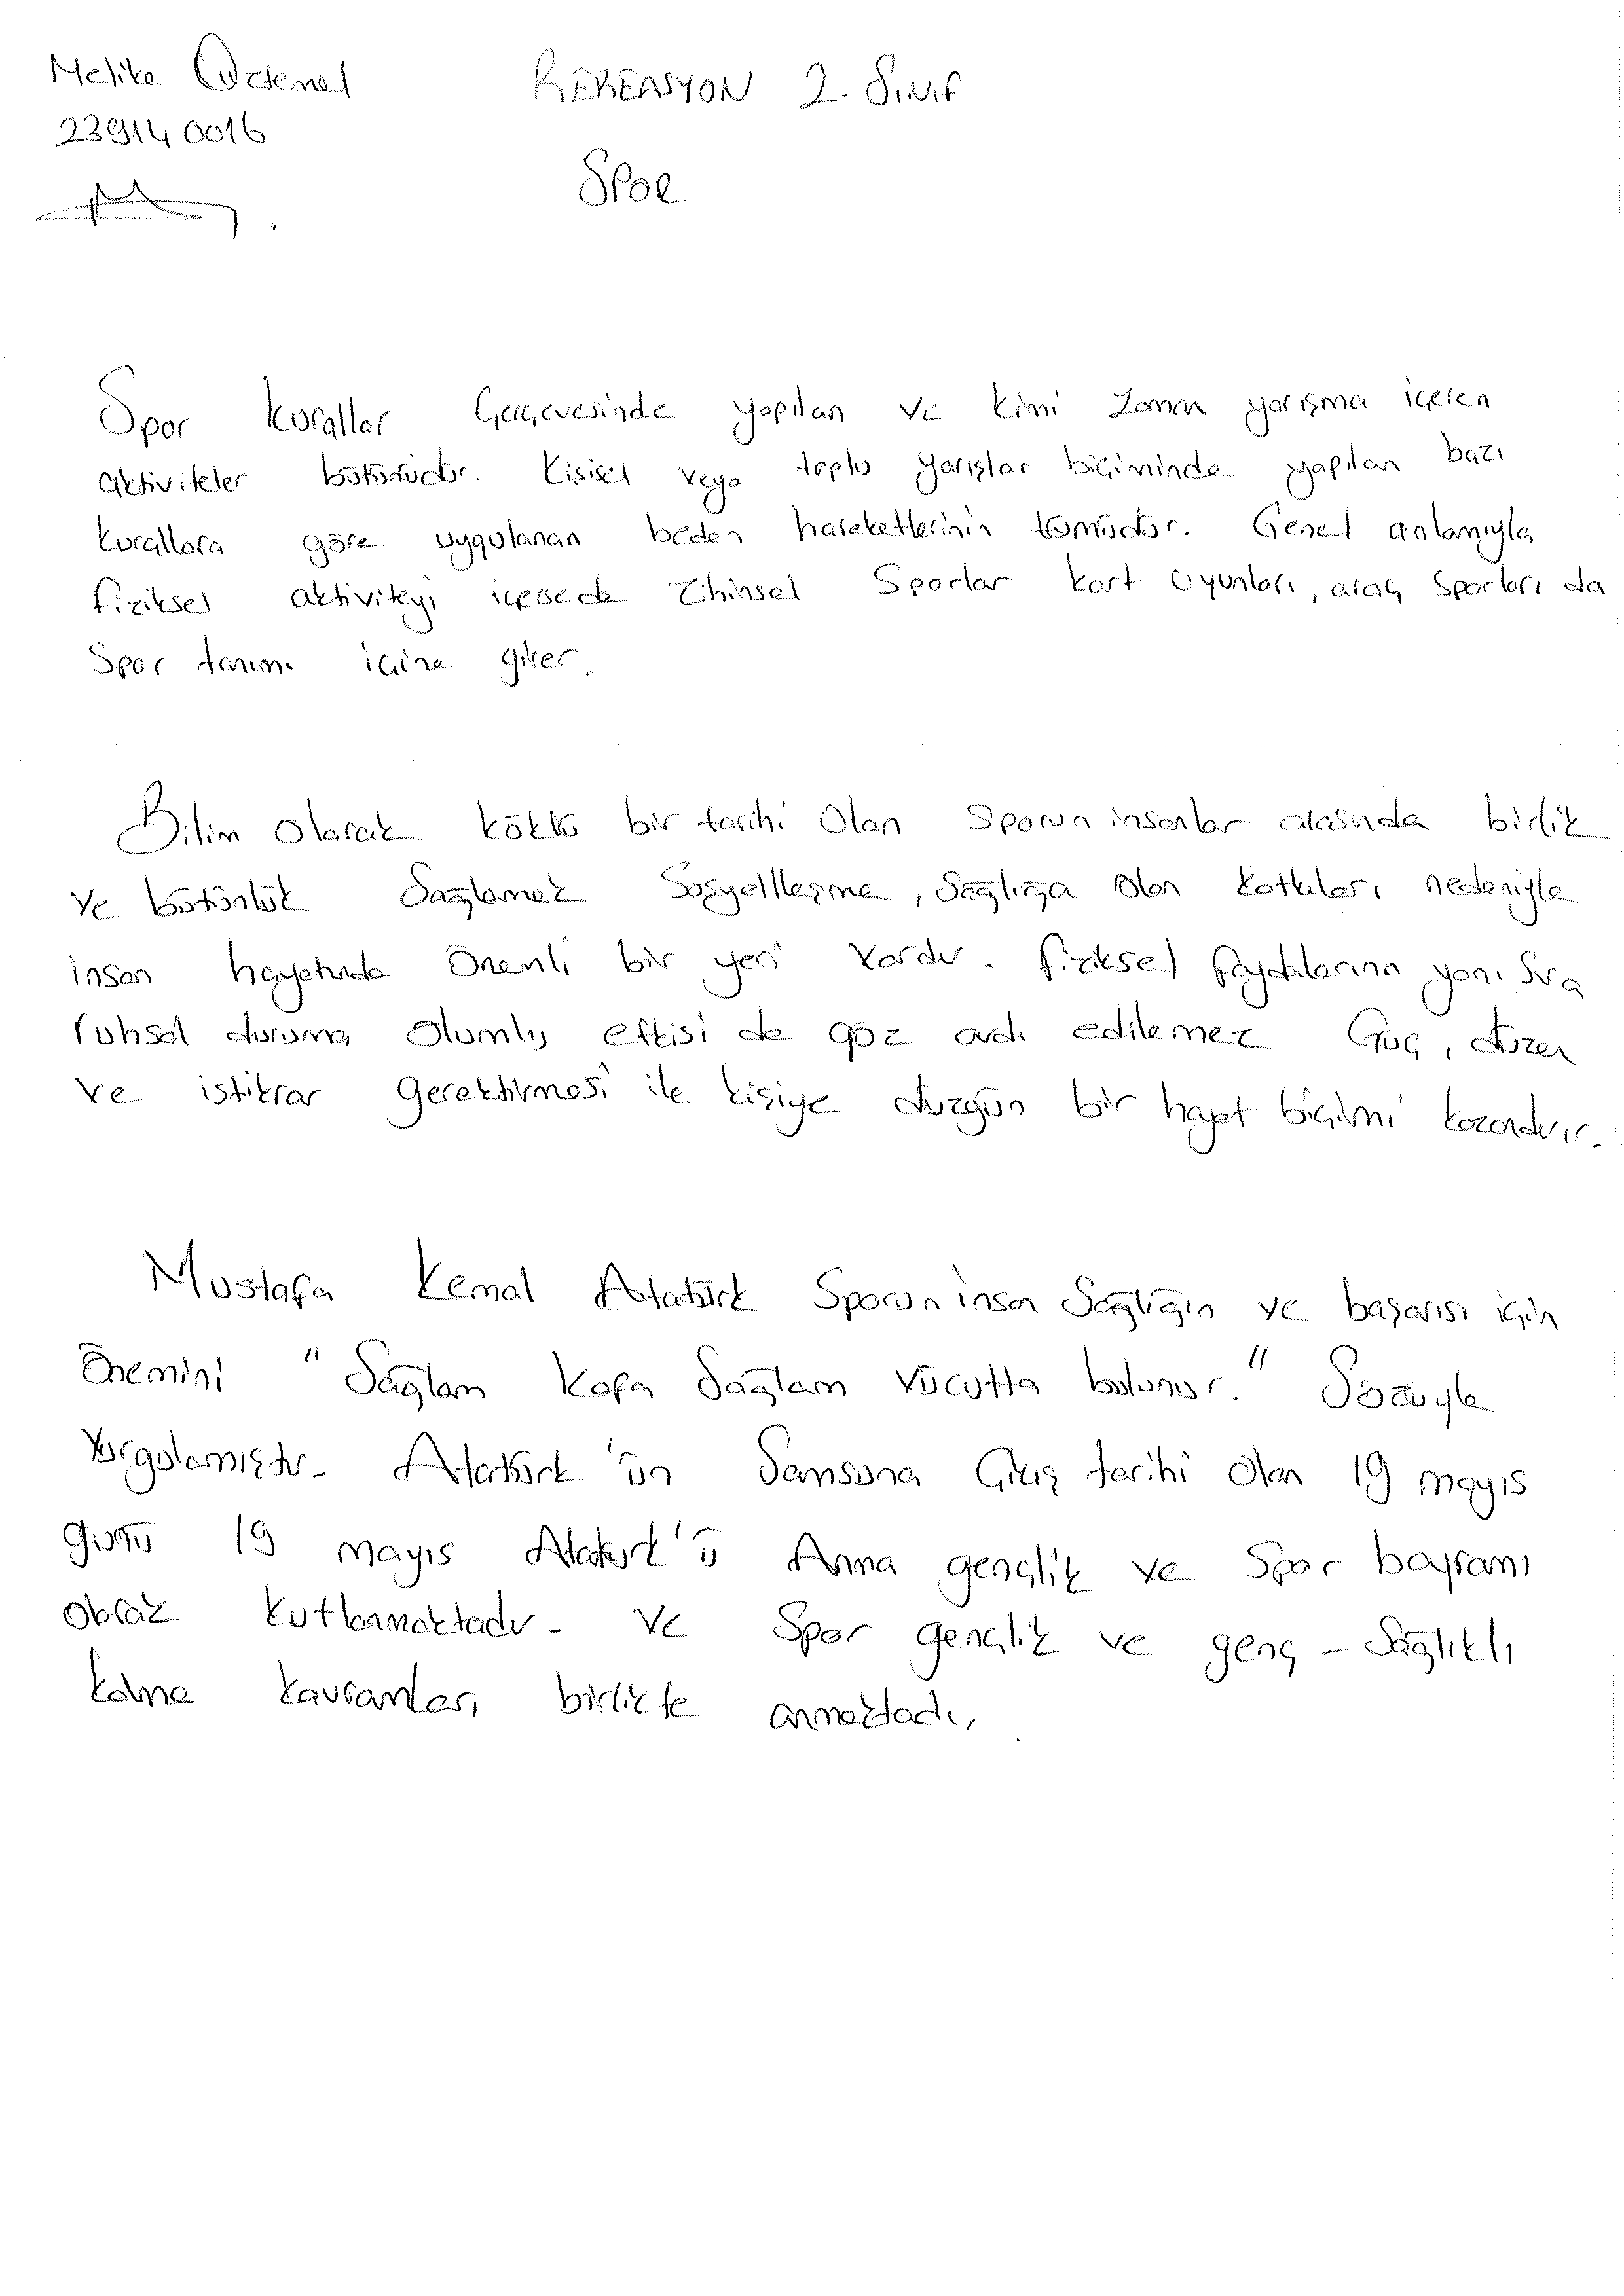 Melike Öztemel
REKREASYON 2. Sınıf
239140016
Spor
Spor kurallar Çerçevesinde yapılan ve kimi zaman yarışma içeren
aktiviteler bütünüdür. Kişisel veya toplu yarışlar biçiminde yapılan bazı
kurallara göre uygulanan beden hareketlerinin tümüdür. Genel anlamıyla
fiziksel aktiviteyi içersede Zihinsel Sporlar kart oyunları, araç Sporları da
Spor tanımı içine girer.
Bilim olarak köklü bir tarihi Olan Sporun insanlar arasında birlik
ve bütünlük Sağlamak Sosyelleşme, Sağlığa olan katkıları nedeniyle
insan hayatında Önemli bir yeri vardır. fiziksel faydalarının yanı Sıra
ruhsal duruma Olumlu etkisi de göz ardı edilemez Güç, düzen
ve istikrar gerektirmesi ile kişiye düzgün bir hayat biçimi kazandırır.
Mustafa Kemal Atatürk Sporun insan Sağlığın ve başarısı için
Önemini " Sağlam Kafa Sağlam Vücutta bulunur." Sözüyle
Vurgulamıştır. Atatürk 'ün Samsuna Çıkış tarihi Olan 19 mayıs
günü 19 mayıs Atatürk'ü Anma gençlik ve Spor bayramı
olarak kutlanmaktadır. ve Spor gençlik ve genç - Sağlıklı
kalma kavramları birlikte anmaktadır.